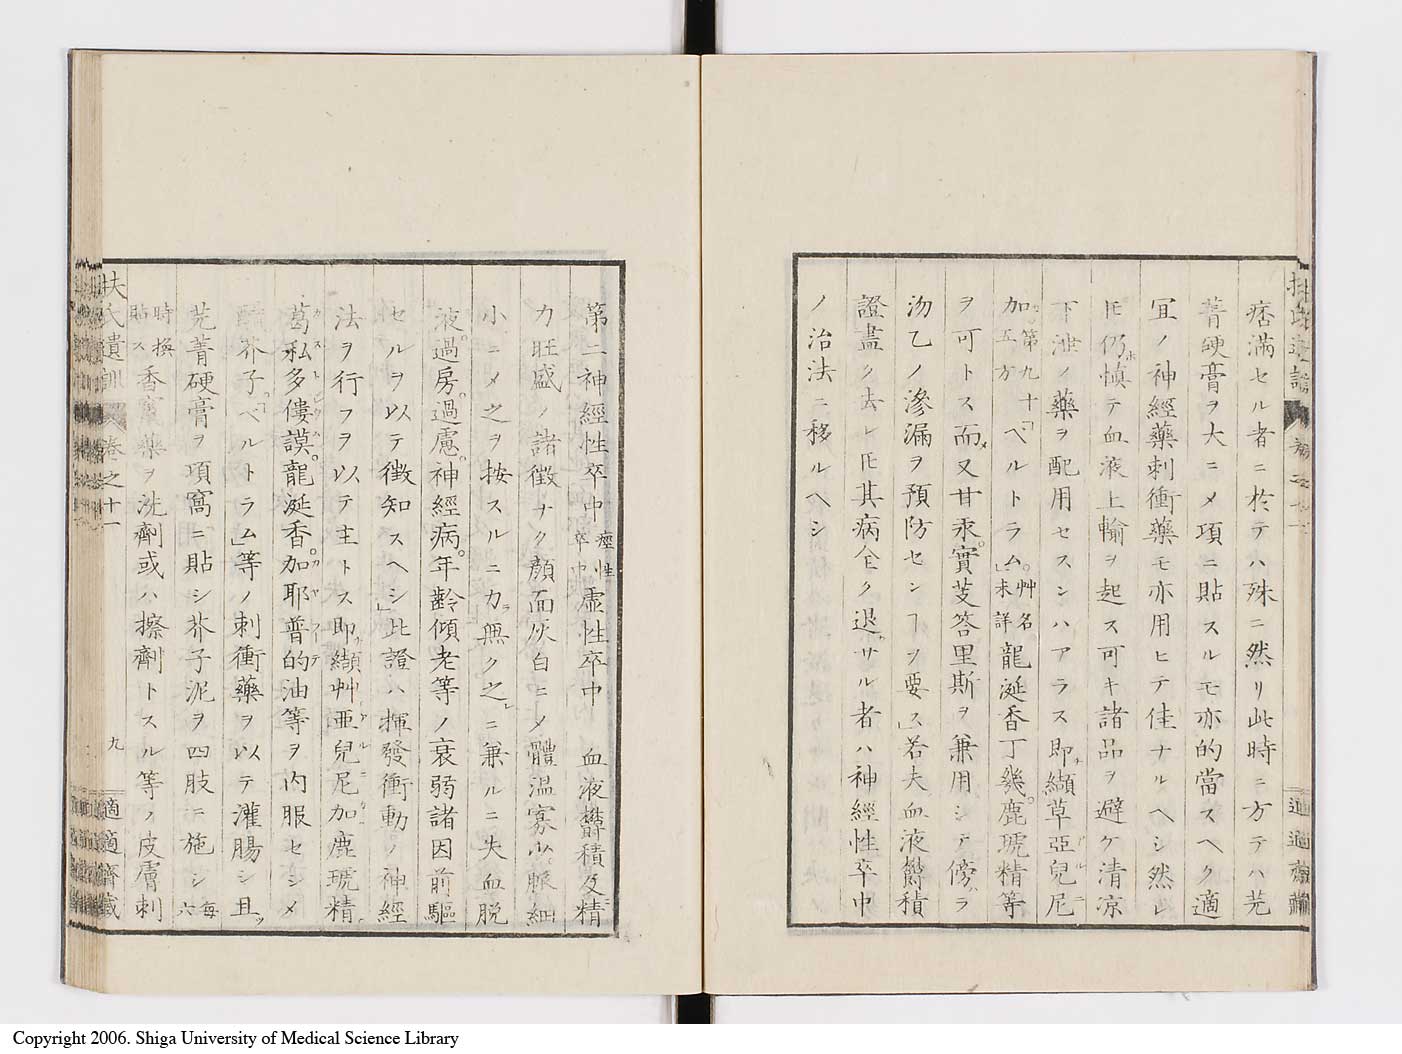 痞滿セル者ニ於テハ殊ニ然リ此時ニ方テハ芫
菁硬膏ヲ大ニメ項ニ貼スルモ亦的當スヘク適
冝ノ神經藥刺衝藥モ亦用ヒテ佳ナルヘシ然レ
𪜈仍慎テ血液上輸ヲ起ス可キ諸品ヲ避ケ清凉
下泄ノ藥ヲ配用セスンハアラス即纈草亞兒尼
加第九十五方「ベルトラム」艸名未詳龍涎香丁幾鹿琥精等
ヲ可トス而又甘汞實芰答里斯ヲ兼用シテ傍ラ
沕乙ノ滲漏ヲ預防センヿヲ要ス」若夫血液欝積
證盡ク去レ𪜈其病全ク退サル者ハ神經性卒中
ノ治法ニ移ルヘシ
第二神經性卒中 痙性卒中 虚性卒中 血液欝積及精
力旺盛ノ諸徴ナク顔面灰白ニメ體温寡少脈細
小ニメ之ヲ按スルニ力無ク之ニ兼ルニ失血脱
液過房過慮神經病年齡傾老等ノ衰弱諸因前驅
セルヲ以テ徴知スヘシ」此證ハ揮發衝動ノ神經
法ヲ行フヲ以テ主トス即纈艸亞兒尼加鹿琥精
葛私多僂謨龍涎香加耶普的油等ヲ内服セシメ
醋芥子「ベルトラム」等ノ刺衝藥ヲ以テ灌腸シ且ツ
芫菁硬膏ヲ項窩ニ貼シ芥子泥ヲ四肢ニ施シ每六
時換貼ス香竄藥ヲ洗劑或ハ擦劑トスル等ノ皮膚刺
扶氏遺訓 卷之十一 九 適適齋藏